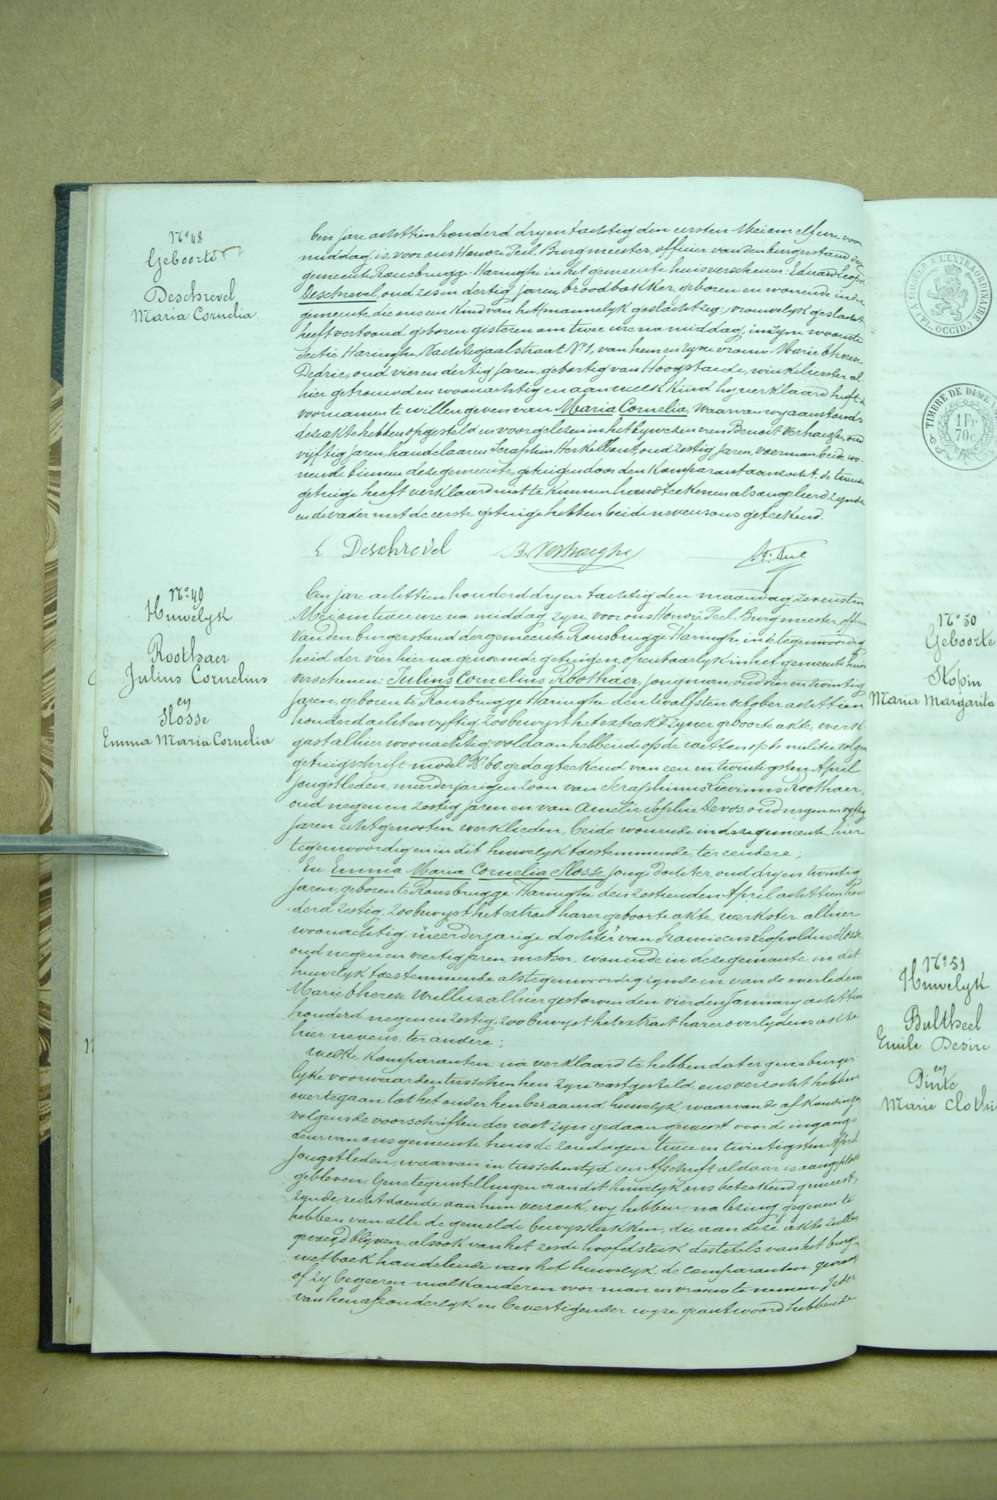 N° 48
Geboorte
Deschrevel
Maria Cornelia
Een jare achttien honderd dry en tachtig den eersten Mei om elf ure voor
middag, is voor ons Honoré Peel, Burgmeester, officier van den burgerstand der
gemeente Rousbrugge-Haringhe in het gemeente huis verschenen: Eduard
Deschrevel, oud zes en dertig jaren, broodbakker, geboren en wonende in deze
gemeente, die ons een kind van het vrouwelyk geslacht
heeft vertoond, geboren gisteren om twee ure na middag, in zyn woonste
sectie Haringhe, Nachtegaalstraat N° 1, van hem en zyne vrouw Marie Therese
Dedrie, oud vier en dertig jaren, geboortig van Hoogstaede, winkelierster al
hier getrouwd en woonachtig en aan welk kind hy verklaard heeft de
voornamen te willen geven van Maria Cornelia, waarvan wy aanstonds
deze akte hebben opgesteld en voorgelezen in het bywezen van Benoit Verhaeghe, oud
vyftig jaren, handelaar en Seraphin Herkelbout, oud zestig jaren, voerman beide wo-
nende binnen deze gemeente, getuigen door den komparant aanzocht, de tweede
getuige heeft verklaard niet te kunnen handteekenen als ongeleerd zynde
en de vader met de eerste getuige hebben beide nevens ons geteekend.
E Deschrevel B. Verhaeghe H. Peel
N° 49
Huwelyk
Roothaer
Julius Cornelius
en
Slosse
Emma Maria Cornelia
Een jare achttien honderd dry en tachtig den maandag zevensten
Mei om twee ure na middag, zyn voor ons Honoré Peel, Burgmeester, officier
van den burgerstand der gemeente Rousbrugge-Haringhe in de tegenwoordig
heid der vier hier na genoemde getuigen, openbaarlyk in het gemeente huis
verschenen: Julius Cornelius Roothaer, jongman, oud vier en twintig
jaren, geboren te Rousbrugge Haringhe den twalfsten october achttien
honderd acht en vyftig, zoo bewyst het extrakt zyner geboorte akte, werk
gast alhier woonachtig, voldaan hebbende op de wetten op de militie volgens
getuigschrift model N° 60, gedagteekend van een en twintigsten April
jongstleden, meerderjarigen zoon van Seraphinus Livinus Roothaer,
oud negen en zestig jaren en van Amelie Sophie Devos, oud negen en vyftig
jaren, echtgenooten, werklieden, beide wonende in deze gemeente, hier
tegenwoordig en in dit huwelyk toestemmende, ter eendere;
En Emma Maria Cornelia Slosse, jonge dochter, oud dry en twintig
jaren, geboren te Rousbrugge Haringhe den zestienden April achttien hon-
derd zestig, zoo bewyst het extrait harer geboorte akte, werkster alhier
woonachtig, meerderjarige dochter van Franciscus Leopoldus Slosse,
oud negen en veertig jaren, metser, wonende in deze gemeente, in dit
huwelyk toestemmende als tegenwoordig zynde en van de overledene
Marie Therese Willus, alhier gestorven den vierden january achttien
honderd negen en zestig, zoo bewyst het extrait harer overlydens akte
hier nevens, ter andere;
Welke komparanten, na verklaard te hebben dat er geene burger-
lyke voorwaarden tusschen hen zyn vastgesteld, ons verzocht hebben
over te gaan tot het onder hen beraamd huwelyk, waarvan de afkondigingen
volgens de voorschriften der wet zyn gedaan geweest voor de ingang
deur van ons gemeente huis de zondagen twee en twintigsten April
jongstleden, waarvan in tusschentyd een afschrift aldaar is aangeplakt
gebleven. Geene tegenstellingen aan dit huwelyk ons beteekend geweest
zynde, recht doende aan hun verzoek, wy hebben, na lezing gegeven te
hebben van alle de gemelde bewysstukken, die aan deze akte zullen
gevoegd blyven, alsook van het zesde hoofdstuk des titels van het burg-
wetboek handelende van het huwelyk, de comparanten gevraagd
of zy begeeren malkanderen voor man en vrouw te nemen. Ieder
van hen afzonderlyk en bevestigender wyze geantwoord hebbende
TIMBRE DE DIME
1 Fr
70 c
N° 50
Geboorte
Slopin
Maria Margarita
N° 51
Huwelyk
Bultheel
Emile Desiré
en
Pinte
Marie Clothi